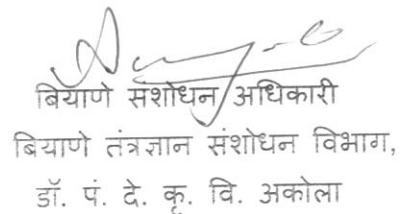 बियाणे संशोधन अधिकारी
बियाणे तंत्रज्ञान संशोधन विभाग,
डॉ. पं. दे. कृ. वि. अकोला